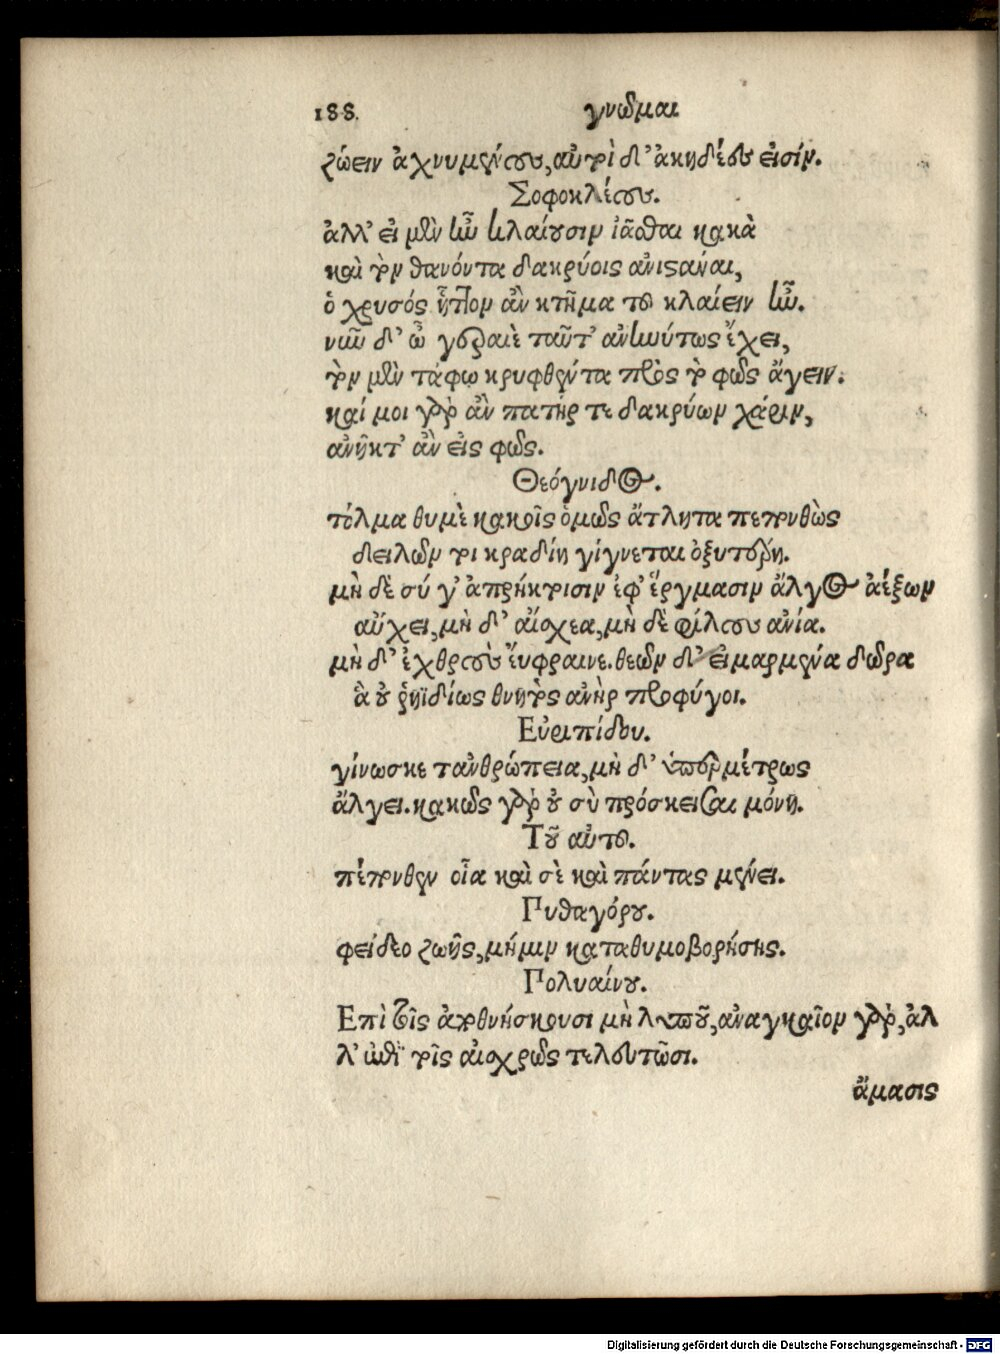 188. γνῶμαι
ζώειν ἀχνυμένους, αὐτοὶ δ' ἀκηδέες εἰσίν.
Σοφοκλέους.
ἀλλ' εἰ μὲν ἦν κλαίουσιν ἰᾶσθαι κακὰ
καὶ τὸν θανόντα δακρύοις ἀνιστάναι,
ὁ χρυσός ἧττον ἂν κτῆμα τοῦ κλαίειν ἦν.
νῦν δ' ὦ γεραιὲ ταῦτ' ἀνηνύτως ἔχει,
τὸν μὲν τάφῳ κρυφθέντα πρὸς τὸ φῶς ἄγειν.
καί μοι γὰρ ἂν πατήρ τε δακρύων χάριν,
ἀνῆκτ' ἂν εἰς φῶς.
Θεόγνιδος.
τόλμα θυμὲ κακοῖς ὁμῶς ἄτλητα πεπονθὼς
δειλῶν τοι κραδίη γίγνεται ὀξυτέρη.
μὴ δὲ σύ γ' ἀπρήκτοισιν ἐφ' ἕργμασιν ἄλγος ἀέξων
αὔχει, μὴ δ' αἴσχεα, μὴ δὲ φίλους ἀνία.
μὴ δ' ἐχθροὺς εὔφραινε. θεῶν δ' εἱμαρμένα δῶρα
ἃ οὐ ῥηϊδίως θνητὸς ἀνὴρ προφύγοι.
Εὐριπίδου.
γίνωσκε τἀνθρώπεια, μὴ δ' ὑπερμέτρως
ἄλγει. κακῶς γὰρ οὐ σὺ πρόσκεισαι μόνη.
Τοῦ αὐτοῦ.
πέπονθεν οἷα καὶ σὲ καὶ πάντας μένει.
Πυθαγόρου.
φείδεο ζωῆς, μή μιν καταθυμοβορήσης.
Πολυαίνου.
Επὶ τοῖς ἀποθνήσκουσι μὴ λυποῦ, ἀναγκαῖον γὰρ, ἀλ
λ' ἐπὶ τοῖς αἰσχρῶς τελευτῶσι.
ἄμασις
Digitalisierung gefördert durch die Deutsche Forschungsgemeinschaft - DFG